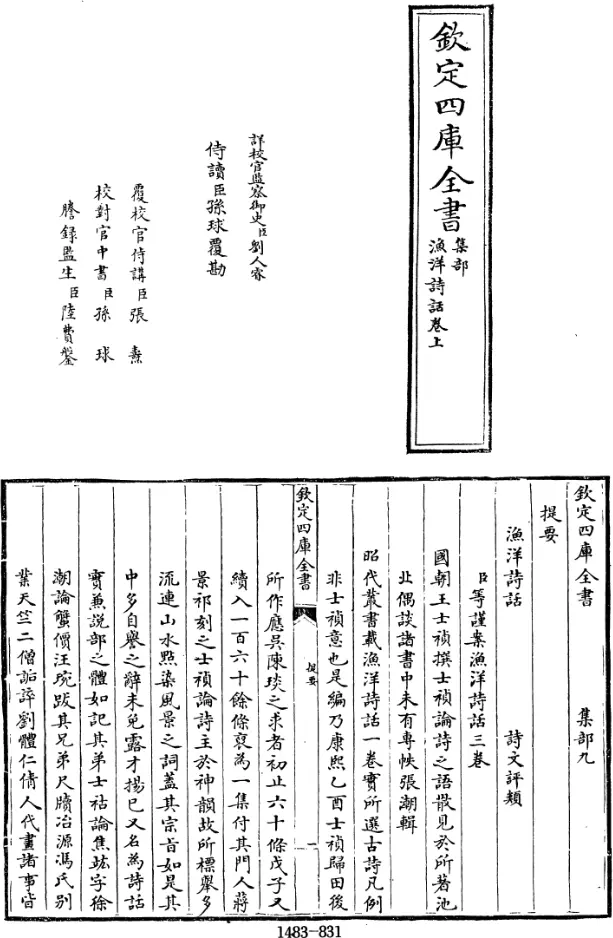 欽定四庫全書
集部
漁洋詩話卷上
詳校官監察御史臣劉人睿
侍讀臣孫球覆勘
覆校官侍講臣張燾
校對官中書臣孫球
謄錄監生臣陸費鎣
欽定四庫全書 集部九
提要
漁洋詩話 詩文評類
臣等謹案漁洋詩話三卷
國朝王士禎撰士禎論詩之語散見於所著池
北偶談諸書中未有專帙張潮輯
昭代叢書載漁洋詩話一卷實所選古詩凡例
非士禎意也是編乃康熙乙酉士禎歸田後
欽定四庫全書 提要 一
所作應吳陳琰之求者初止六十條戊子又
續入一百六十餘條裒為一集付其門人蔣
景祁刻之士禎論詩主於神韻故所標舉多
流連山水點染風景之詞蓋其宗旨如是其
中多自譽之辭未免露才揚己又名為詩話
實兼說部之體如記其弟士祜論焦竑字徐
潮論蟹價汪琬跋其兄弟尺牘冶源馮氏別
業天竺二僧詬誶劉體仁倩人代畫諸事皆
1483-831